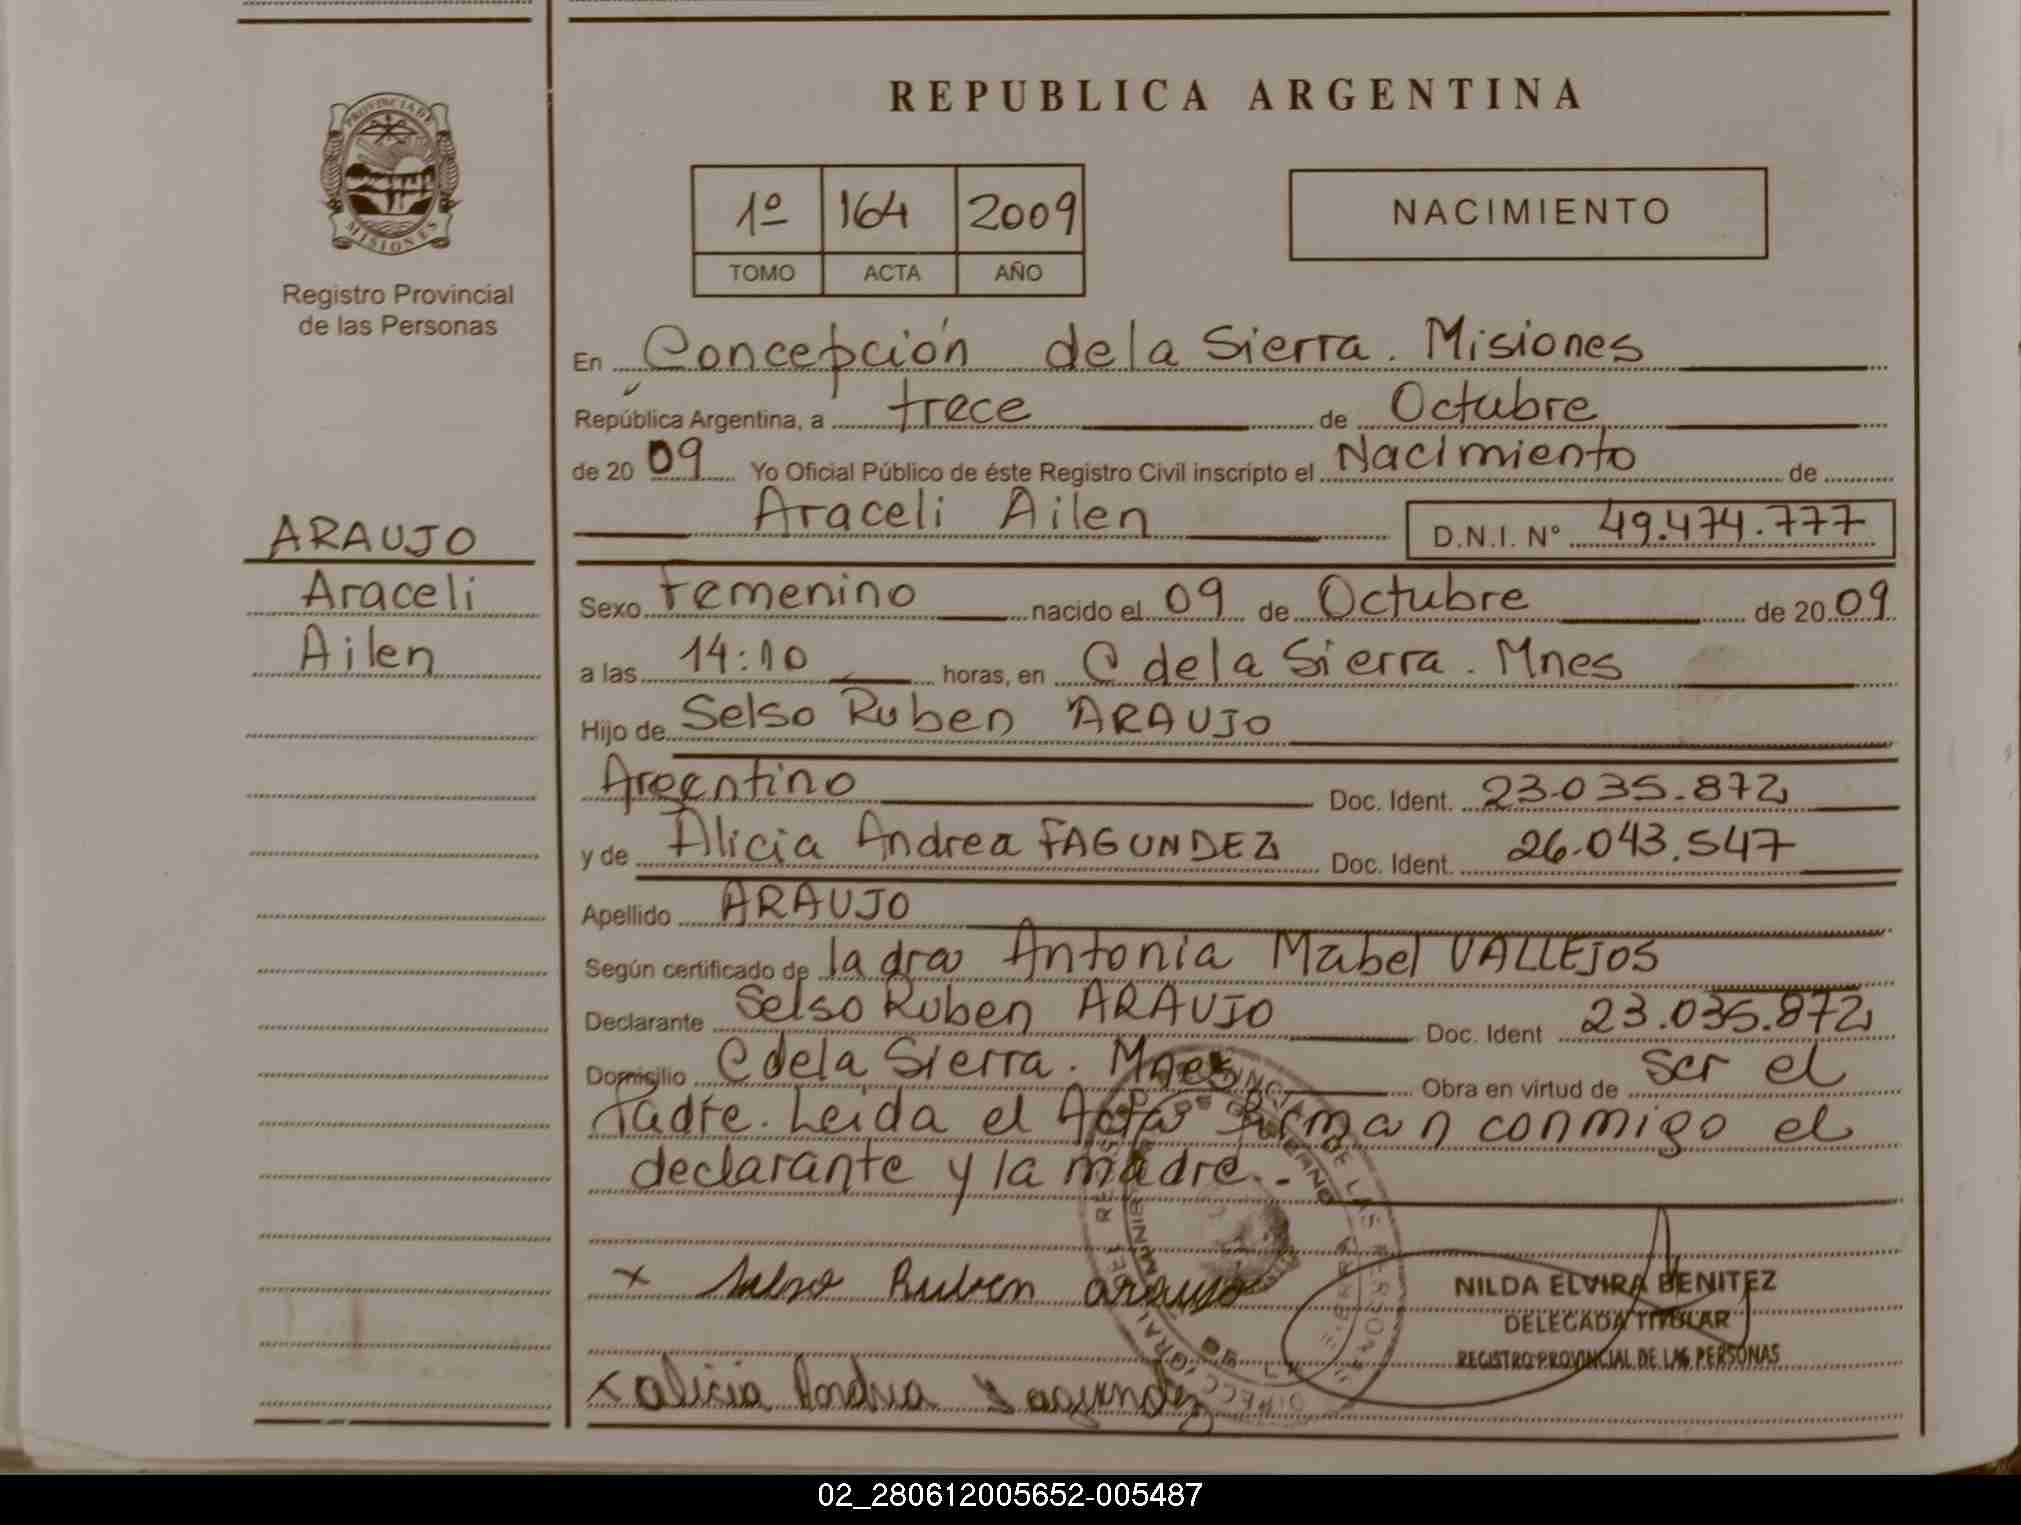 REPUBLICA ARGENTINA
PROVINCIA DE
MISIONES
Registro Provincial
de las Personas
1º 164 2009
TOMO ACTA AÑO
NACIMIENTO
En Concepción de la Sierra. Misiones
República Argentina, a trece de Octubre
de 20 09 Yo Oficial Público de éste Registro Civil inscripto el Nacimiento de
Araceli Ailen D.N.I. Nº 49.474.777
ARAUJO
Araceli
Ailen
Sexo Femenino nacido el 09 de Octubre de 20 09
a las 14:10 horas, en C de la Sierra. Mnes
Hijo de Selso Ruben ARAUJO
Argentino Doc. Ident. 23.035.872
y de Alicia Andrea FAGUNDEZ Doc. Ident. 26.043.547
Apellido ARAUJO
Según certificado de la dra Antonia Mabel VALLEJOS
Declarante Selso Ruben ARAUJO Doc. Ident 23.035.872
Domicilio C de la Sierra. Mnes Obra en virtud de ser el
Padre. Leida el Acta firman conmigo el
declarante y la madre.-
x Selso Ruben araujo
NILDA ELVIRA BENITEZ
DELEGADA TITULAR
REGISTRO PROVINCIAL DE LAS PERSONAS
x alicia Andrea Fagundez
02_280612005652-005487